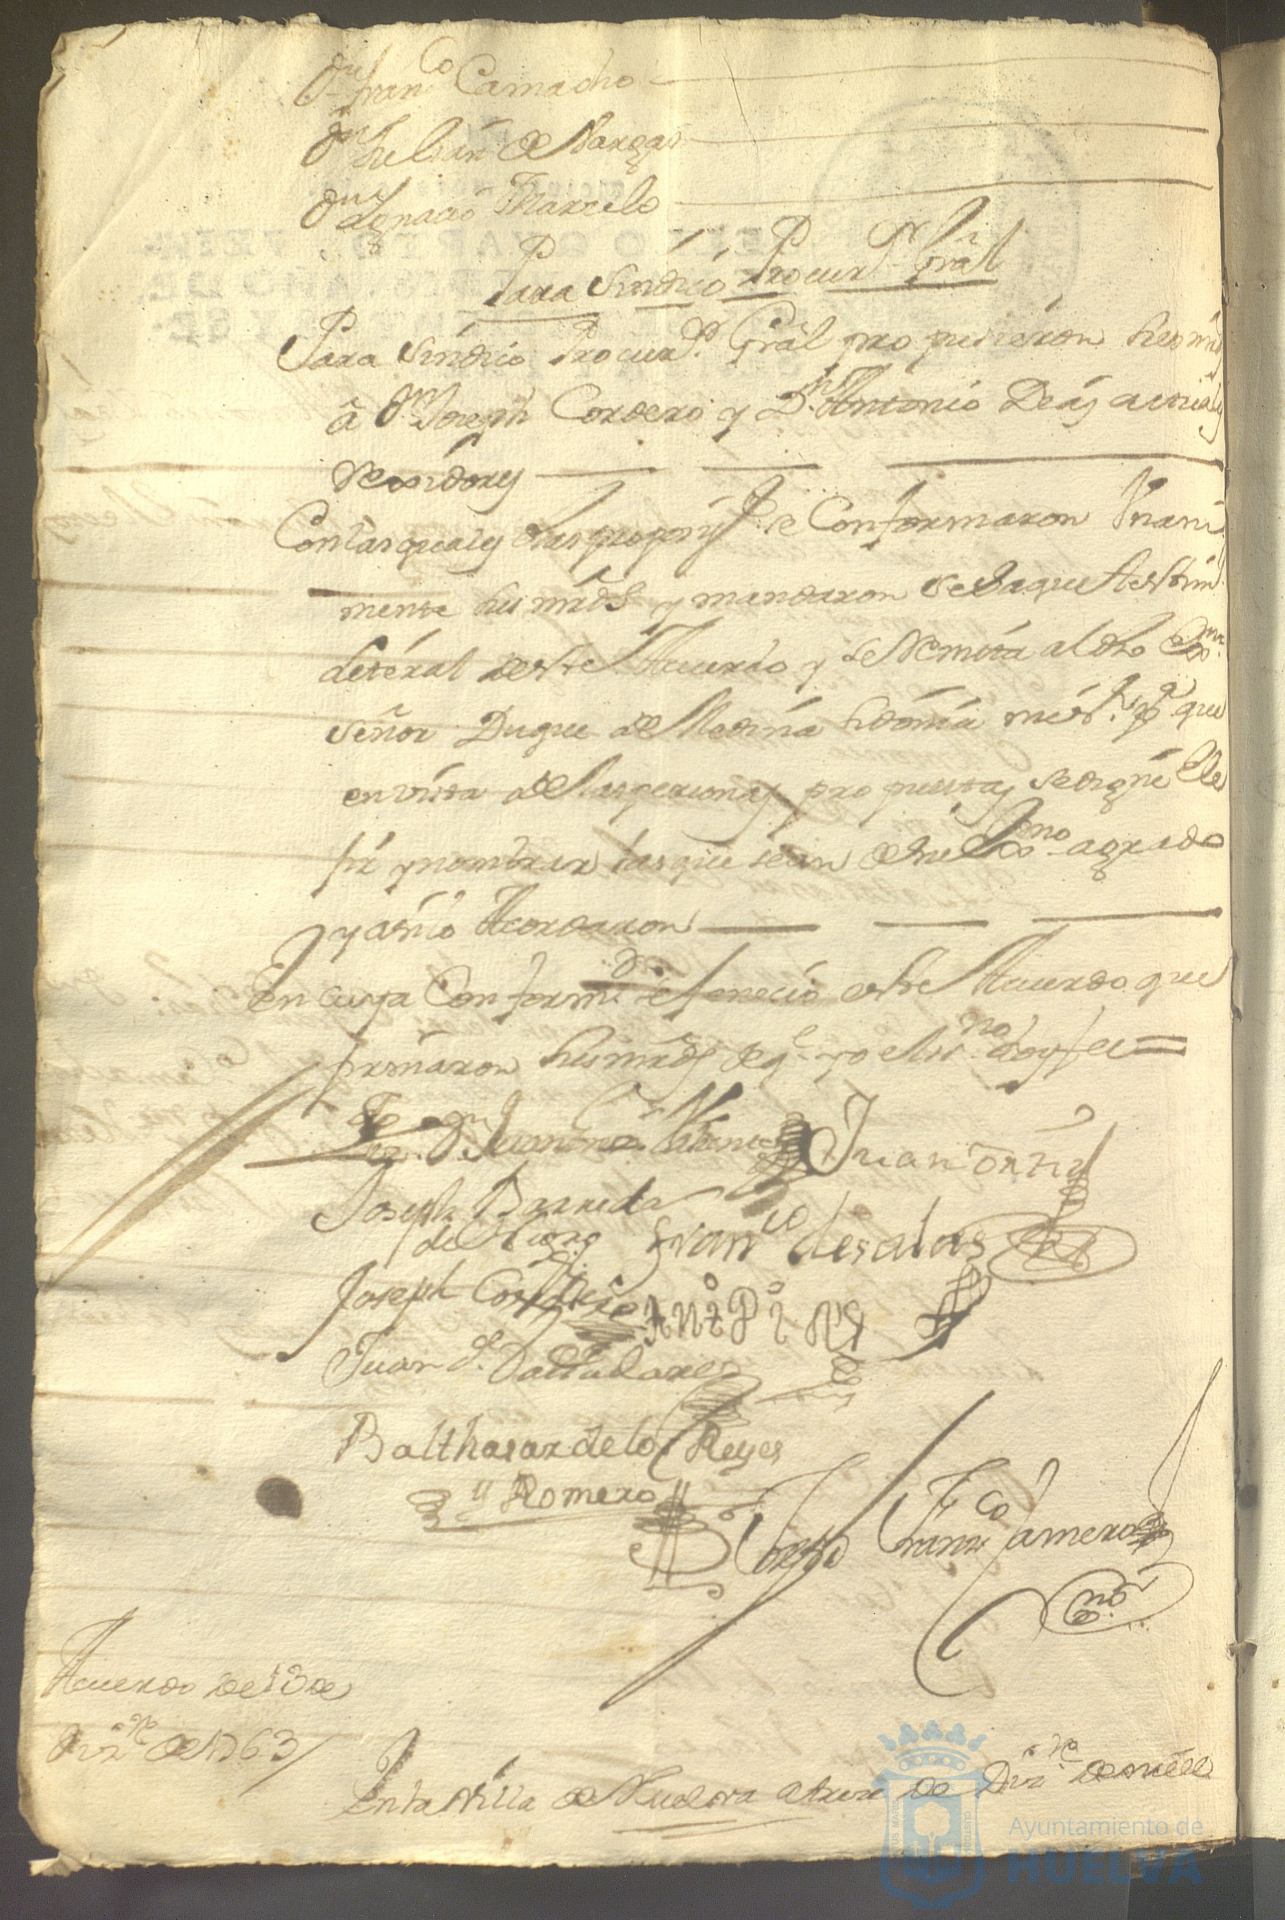 Dn Franco Camacho
Dn Julian de Vargas
Dn Ygnacio Marcelo
Para Sindico Procurr Gral
Para Sindico Procurdr Gral propusieron sus mrds
â Dn Joseph Cordero y Dn Antonio Deas actuales
Rexidores
Con las quales dhas propts se Conformaron Unani
mente sus mrds y mandaron se saque testim
literal de este Acuerdo y se Remita al dho Exmo
Señor Duque de Medina Sidonia mi Sr pa que
en vista de las personas propuestas se digne Ele
jir y nombrar las que sean de su Exmo agrado
y assi lo Acordaron
En cuya Conformd se fenecio este Acuerdo que
firmaron sus mrds de q yo el ssno doy fee
Juan Ortiz
Joseph Barreda
Franco de salas
Joseph Cordero
Juan Dn Valladares
Balthasar de los Reyes
y Romero
Franco Jamero
Acuerdo de 13 de
Dizre de 1763
En la Villa de Huelva a trece de Dizre de mill
Ayuntamiento de
HUELVA